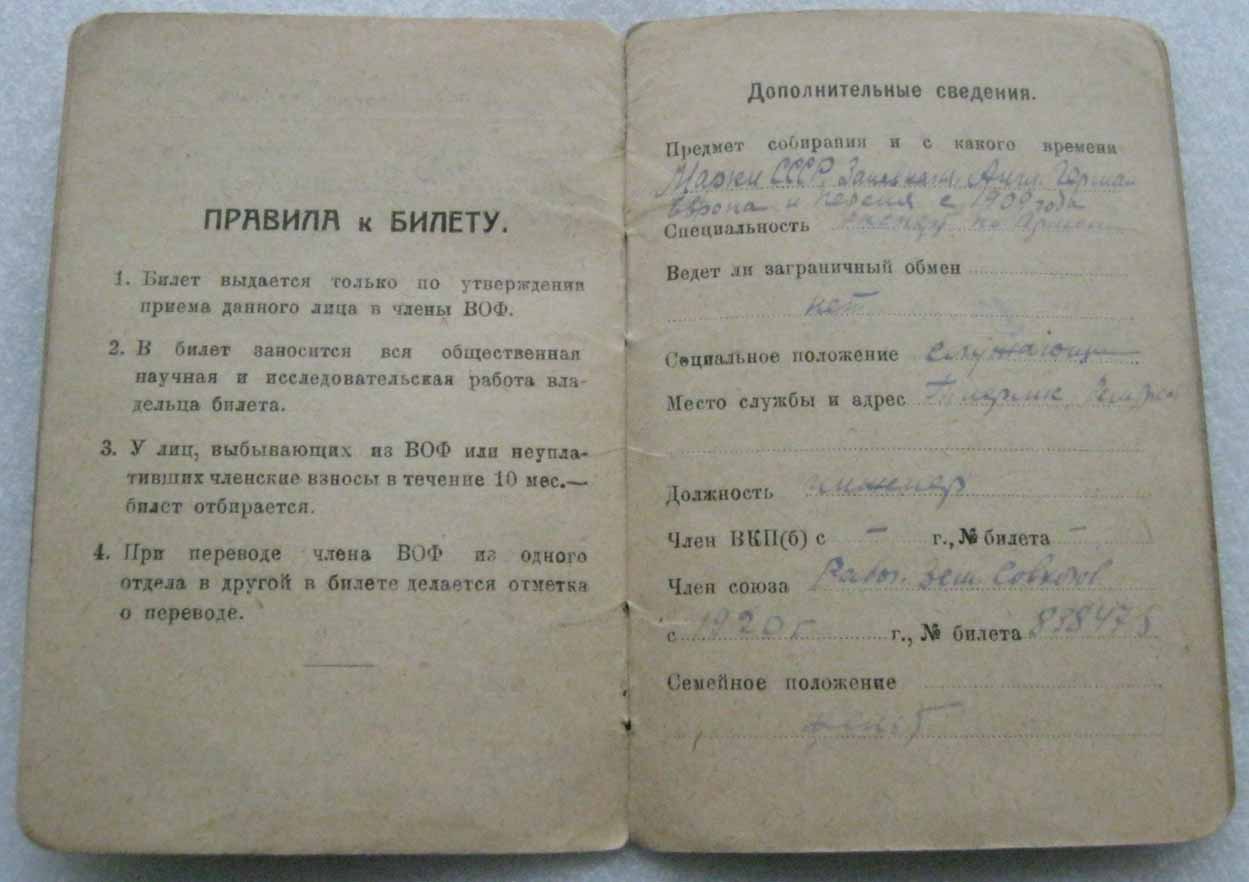 ПРАВИЛА к БИЛЕТУ.
1. Билет выдается только по утверждении
приема данного лица в члены ВОФ.
2. В билет заносится вся общественная
научная и исследовательская работа вла-
дельца билета.
3. У лиц, выбывающих из ВОФ или неупла-
тивших членские взносы в течение 10 мес.—
билет отбирается.
4. При переводе члена ВОФ из одного
отдела в другой в билете делается отметка
о переводе.
Дополнительные сведения.
Предмет собирания и с какого времени
Марки СССР, Англ. Герман
Европа и Персия с 1909 года
Специальность
Ведет ли заграничный обмен
нет
Социальное положение служащий
Место службы и адрес
Должность инженер
Член ВКП(б) с — г., № билета —
Член союза Работ. Зем. Совхозов
с 1920 г г., № билета 838475
Семейное положение
женат